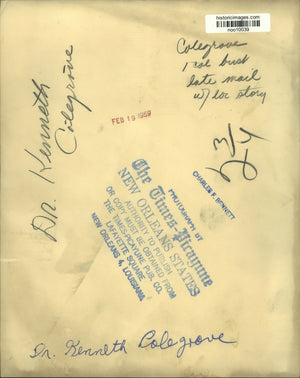 historicimages.com
noo10039
Colegrove
1 col bust
late mail
w/ loc story
Dr. Kenneth
Colegrove
FEB 19 1959
3/24
PHOTOGRAPH BY
CHARLES F. BENNETT
The Times-Picayune
NEW ORLEANS STATES
AUTHORITY TO PUBLISH
OR COPY MUST BE OBTAINED FROM
THE TIMES-PICAYUNE PUB. CO.
LAFAYETTE SQUARE
NEW ORLEANS 4, LOUISIANA
Dr. Kenneth Colegrove